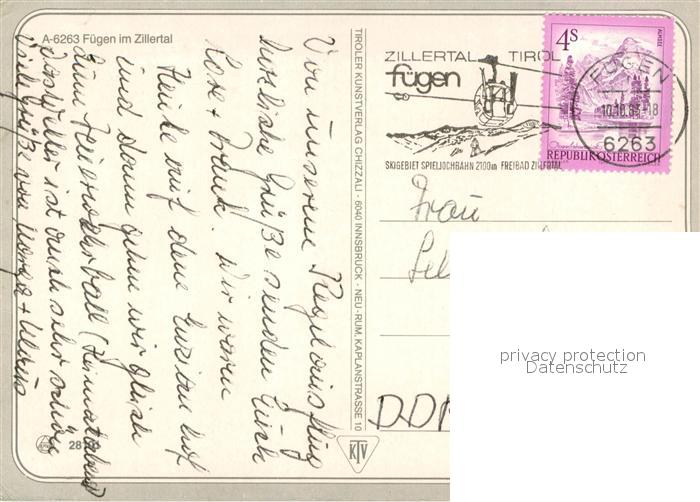 A-6263 Fügen im Zillertal
Von unserem Kegelausflug
herzliche Grüße senden Euch
Rose + Frank. Wir waren
Heute auf dem Enzianhof
und dann gehen wir gleich
zum Feuerwehrball (Heimatabend)
Das Wetter ist auch sehr schön
Viele Grüße von
TIROLER KUNSTVERLAG CHIZZALI · 6040 INNSBRUCK - NEU-RUM, KAPLANSTRASSE 10
KTV
ZILLERTAL TIROL
fügen
SKIGEBIET SPIELJOCHBAHN 2100m FREIBAD ZILLERTAL
4S
ALMSEE
REPUBLIK ÖSTERREICH
FÜGEN
6263
Frau
DDR
privacy protection
Datenschutz